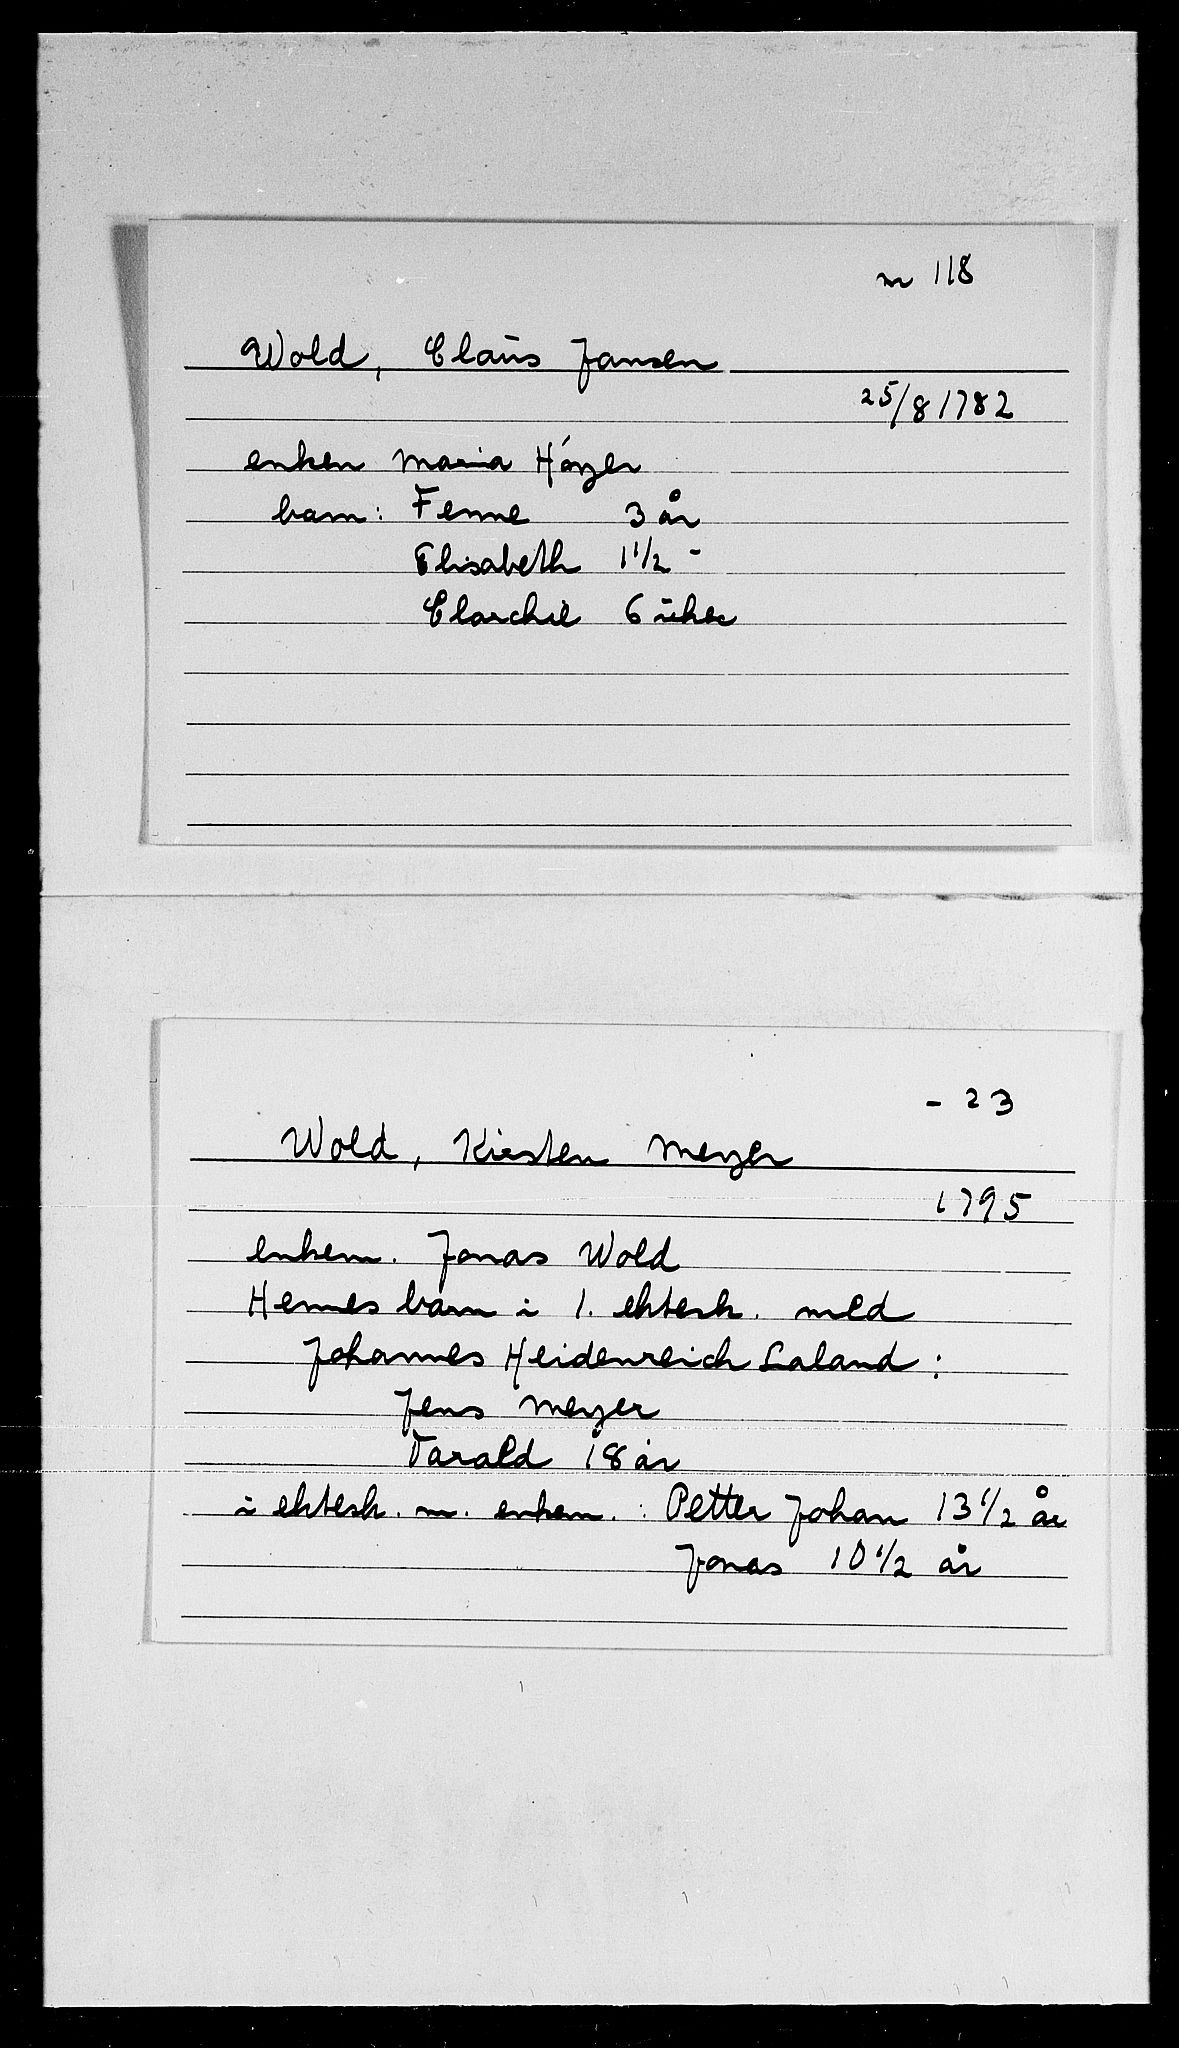 m 118
Wold, Claus Jansen
25/8 1782
enken Maria Höyer
barn: Fenne 3 år
Elisabeth 1 1/2 -
Clarchie 6 uker
- 23
Wold, Kirsten Meyer
1795
enkem. Jonas Wold
Hennes barn i 1. ektesk. med
Johannes Heidenreich Laland:
Jens Meyer
Tarald 18 år
i ektesk. m. enkem. : Petter Johan 13 1/2 år
Jonas 10 1/2 år